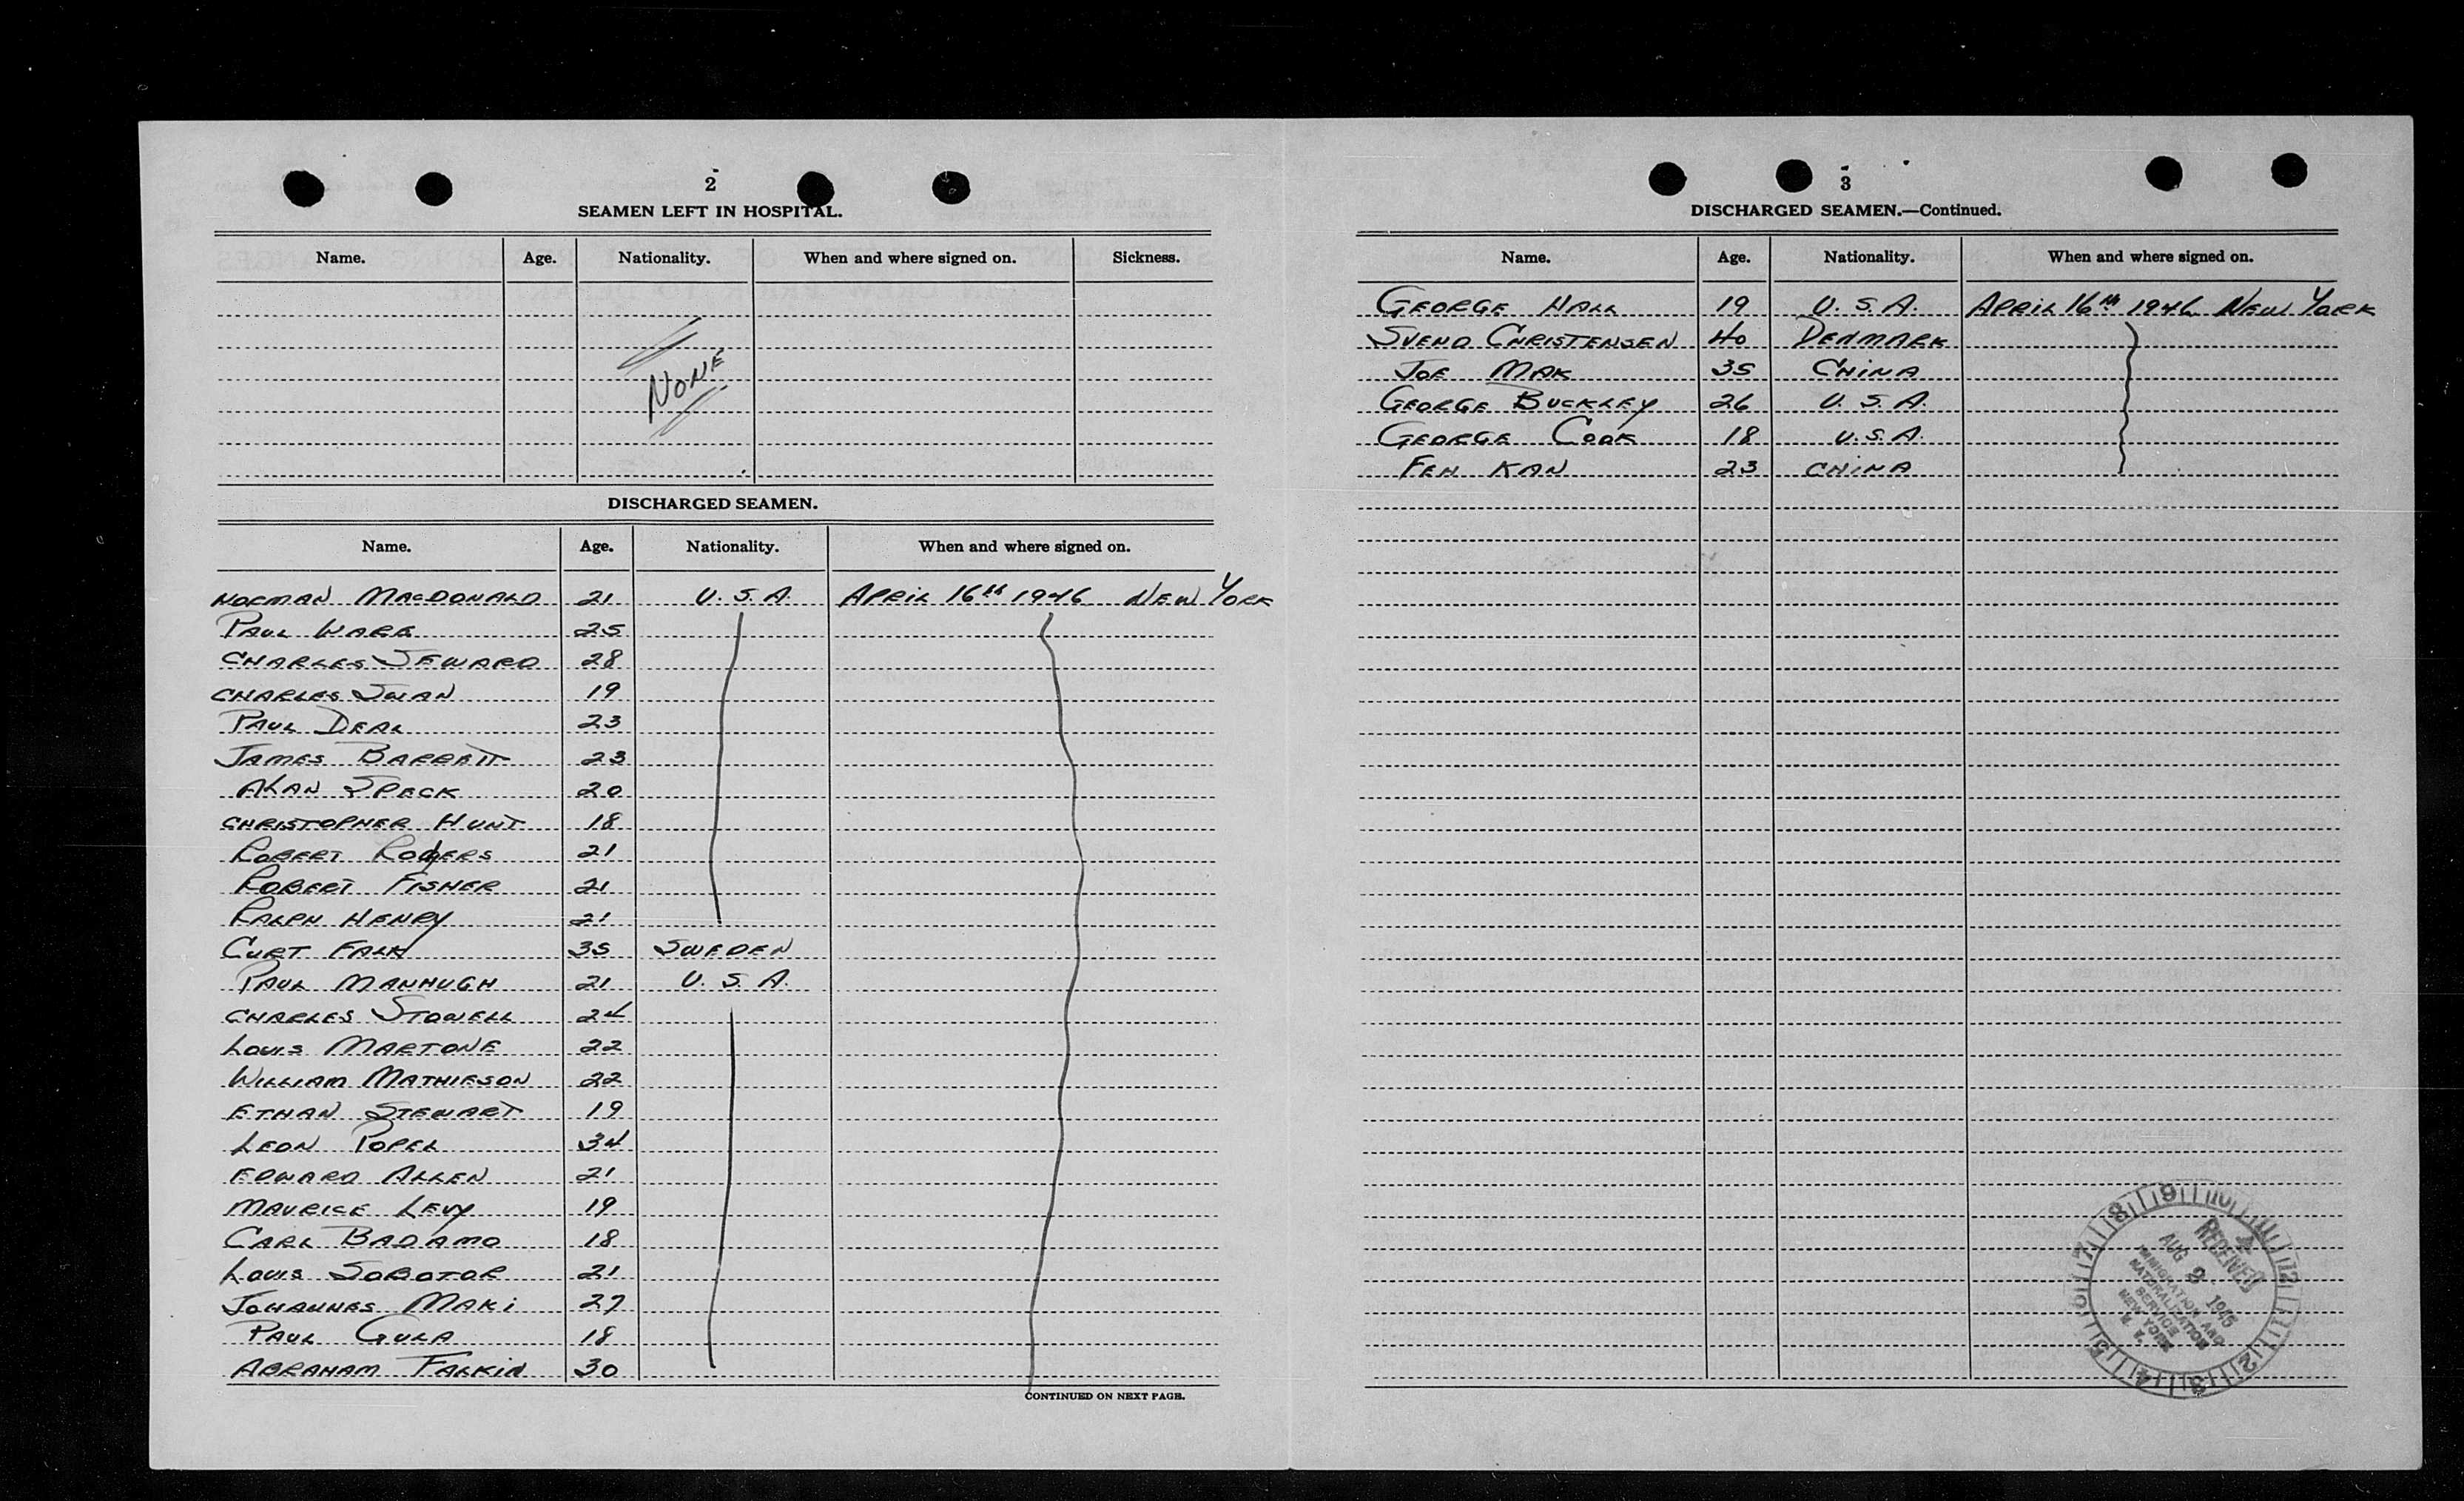 2
SEAMEN LEFT IN HOSPITAL.
Name. Age. Nationality. When and where signed on. Sickness.
NONE
DISCHARGED SEAMEN.
Name. Age. Nationality. When and where signed on.
NORMAN MACDONALD 21 U.S.A. APRIL 16th 1946 NEW YORK
PAUL WARE 25
CHARLES SEWARD 28
CHARLES SWAN 19
PAUL DEAL 23
JAMES BARRETT 23
ALAN SPECK 20
CHRISTOPHER HUNT 18
ROBERT RODGERS 21
ROBERT FISHER 21
RALPH HENRY 21
CURT FALK 35 SWEDEN
PAUL MANHUGH 21 U.S.A.
CHARLES STOWELL 24
LOUIS MARTONE 22
WILLIAM MATHIESON 22
ETHAN STEWART 19
LEON POPEL 34
EDWARD ALLEN 21
MAURICE LEVY 19
CARL BADAMO 18
LOUIS SOBOTOR 21
JOHANNES MAKI 27
PAUL GULA 18
ABRAHAM FALKIN 30
CONTINUED ON NEXT PAGE.
3
DISCHARGED SEAMEN.—Continued.
Name. Age. Nationality. When and where signed on.
GEORGE HALL 19 U.S.A. APRIL 16th 1946 NEW YORK
SVEND CHRISTENSEN 40 DENMARK
JOE MAK 35 CHINA
GEORGE BUCKLEY 26 U.S.A.
GEORGE COOK 18 U.S.A.
FEH KAN 23 CHINA
RECEIVED
AUG 9 1946
IMMIGRATION AND
NATURALIZATION
SERVICE
NEW YORK
N. Y.